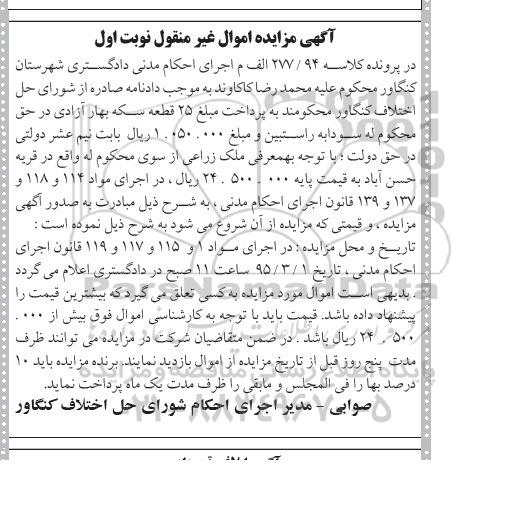 آگهی مزایده اموال غیر منقول نوبت اول
در پرونده کلاسه ۹۴ / ۲۷۷ الف م اجرای احکام مدنی دادگستری شهرستان
کنگاور محکوم علیه محمد رضا کاکاوند به موجب دادنامه صادره از شورای حل
اختلاف کنگاور محکومند به پرداخت مبلغ ۲۵ قطعه سکه بهار آزادی در حق
محکوم له سودابه راستبین و مبلغ ۱.۰۵۰.۰۰۰ ریال بابت نیم عشر دولتی
در حق دولت ؛ با توجه بهمعرفی ملک زراعی از سوی محکوم له واقع در قریه
حسن آباد به قیمت پایه ۰۰۰ . ۵۰۰ . ۲۴ ریال ، در اجرای مواد ۱۱۴ و ۱۱۸ و
۱۳۷ و ۱۳۹ قانون اجرای احکام مدنی ، به شرح ذیل مبادرت به صدور آگهی
مزایده ، و قیمتی که مزایده از آن شروع می شود به شرح ذیل نموده است :
تاریخ و محل مزایده : در اجرای مواد ۱ و ۱۱۵ و ۱۱۷ و ۱۱۹ قانون اجرای
احکام مدنی ، تاریخ ۱ / ۳ / ۹۵ ساعت ۱۱ صبح در دادگستری اعلام می گردد
. بدیهی است اموال مورد مزایده به کسی تعلق می گیرد که بیشترین قیمت را
پیشنهاد داده باشد. قیمت باید با توجه به کارشناسی اموال فوق بیش از ۰۰۰ .
۵۰۰ . ۲۴ ریال باشد . در ضمن متقاضیان شرکت در مزایده می توانند ظرف
مدت پنج روز قبل از تاریخ مزایده از اموال بازدید نمایند. برنده مزایده باید ۱۰
درصد بها را فی المجلس و مابقی را ظرف مدت یک ماه پرداخت نماید.
صوابی – مدیر اجرای احکام شورای حل اختلاف کنگاور
ParsNamadData
۰۲۱-۸۸۳۴۹۶۷۰-۵